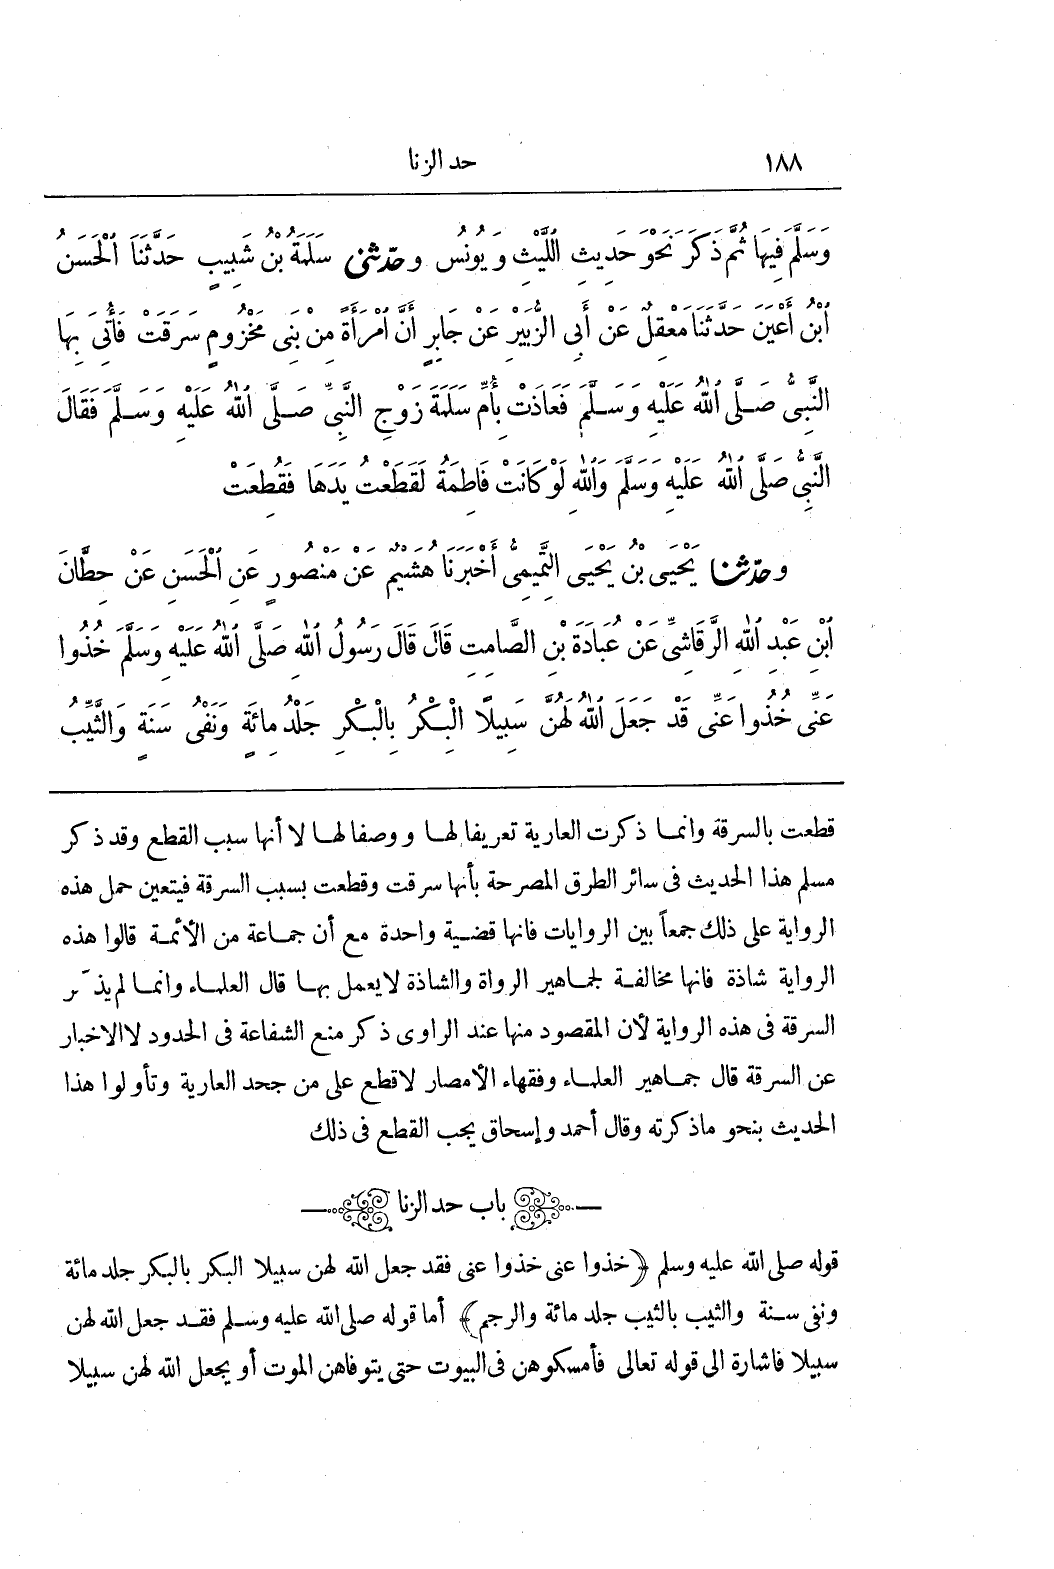 ١٨٨ حد الزنا
وَسَلَّمَ فِيهَا ثُمَّ ذَكَرَ نَحْوَ حَدِيثِ اللَّيْثِ وَيُونُسَ وحَدَّثَنِي سَلَمَةُ بْنُ شَبِيبٍ حَدَّثَنَا الْحَسَنُ
ابْنُ أَعْيَنَ حَدَّثَنَا مَعْقِلٌ عَنْ أَبِي الزُّبَيْرِ عَنْ جَابِرٍ أَنَّ امْرَأَةً مِنْ بَنِي مَخْزُومٍ سَرَقَتْ فَأُتِيَ بِهَا
النَّبِيُّ صَلَّى اللهُ عَلَيْهِ وَسَلَّمَ فَعَاذَتْ بِأُمِّ سَلَمَةَ زَوْجِ النَّبِيِّ صَلَّى اللهُ عَلَيْهِ وَسَلَّمَ فَقَالَ
النَّبِيُّ صَلَّى اللهُ عَلَيْهِ وَسَلَّمَ وَاللهِ لَوْ كَانَتْ فَاطِمَةُ لَقَطَعْتُ يَدَهَا فَقُطِعَتْ
وحَدَّثَنَا يَحْيَى بْنُ يَحْيَى التَّمِيمِيُّ أَخْبَرَنَا هُشَيْمٌ عَنْ مَنْصُورٍ عَنِ الْحَسَنِ عَنْ حِطَّانَ
ابْنِ عَبْدِ اللهِ الرَّقَاشِيِّ عَنْ عُبَادَةَ بْنِ الصَّامِتِ قَالَ قَالَ رَسُولُ اللهِ صَلَّى اللهُ عَلَيْهِ وَسَلَّمَ خُذُوا
عَنِّي خُذُوا عَنِّي قَدْ جَعَلَ اللهُ لَهُنَّ سَبِيلًا الْبِكْرُ بِالْبِكْرِ جَلْدُ مِائَةٍ وَنَفْيُ سَنَةٍ وَالثَّيِّبُ
قطعت بالسرقة وانما ذكرت العارية تعريفا لها ووصفا لها لا أنها سبب القطع وقد ذكر
مسلم هذا الحديث فى سائر الطرق المصرحة بأنها سرقت وقطعت بسبب السرقة فيتعين حمل هذه
الرواية على ذلك جمعاً بين الروايات فانها قضية واحدة مع أن جماعة من الأئمة قالوا هذه
الرواية شاذة فانها مخالفة لجماهير الرواة والشاذة لايعمل بها قال العلماء وانما لم يذكر
السرقة فى هذه الرواية لأن المقصود منها عند الراوى ذكر منع الشفاعة فى الحدود لا الاخبار
عن السرقة قال جماهير العلماء وفقهاء الأمصار لاقطع على من جحد العارية وتأولوا هذا
الحديث بنحو ماذكرته وقال أحمد وإسحاق يجب القطع فى ذلك
باب حد الزنا
قوله صلى الله عليه وسلم ﴿خذوا عنى خذوا عنى فقد جعل الله لهن سبيلا البكر بالبكر جلد مائة
ونفى سنة والثيب بالثيب جلد مائة والرجم﴾ أما قوله صلى الله عليه وسلم فقد جعل الله لهن
سبيلا فاشارة الى قوله تعالى فأمسكوهن فى البيوت حتى يتوفاهن الموت أو يجعل الله لهن سبيلا